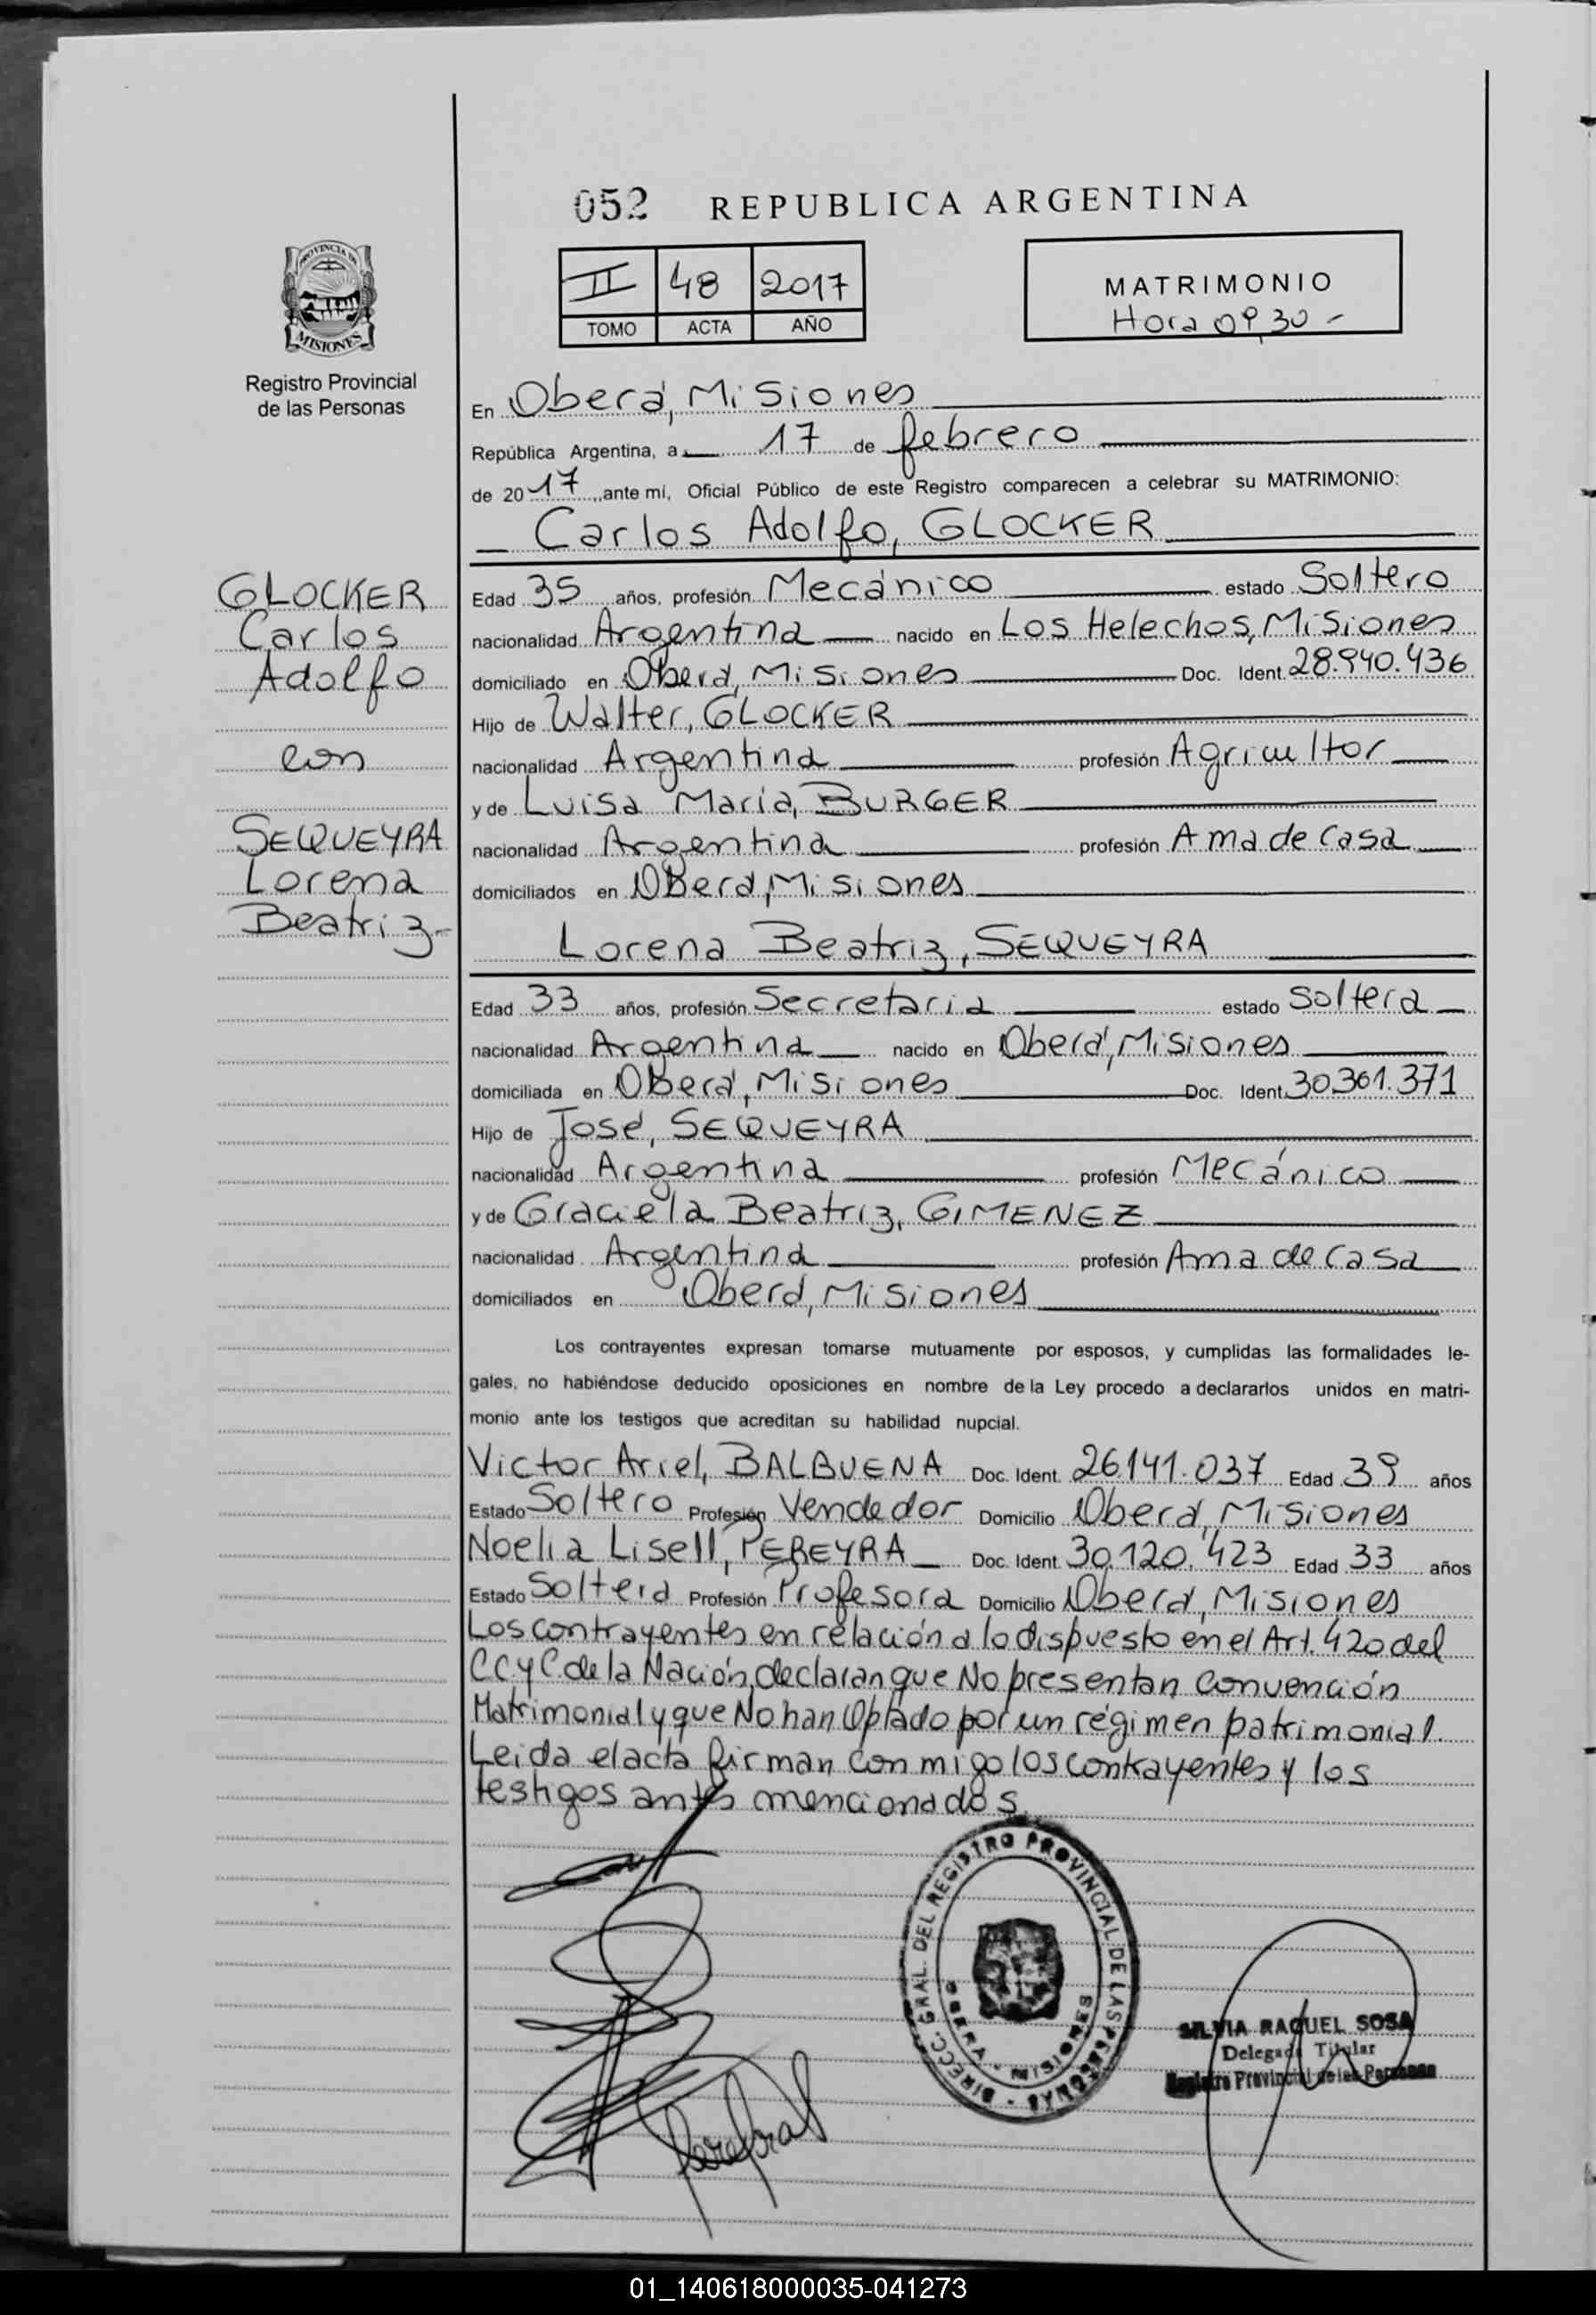 052 REPUBLICA ARGENTINA
PROVINCIA DE
MISIONES
Registro Provincial
de las Personas
II 48 2017
TOMO ACTA AÑO
MATRIMONIO
Hora 09,30 -
En Oberá, Misiones
República Argentina, a 17 de febrero
de 2017, ante mí, Oficial Público de este Registro comparecen a celebrar su MATRIMONIO:
Carlos Adolfo, GLOCKER
GLOCKER
Carlos
Adolfo
con
SEQUEYRA
Lorena
Beatriz-
Edad 35 años, profesión Mecánico estado Soltero
nacionalidad Argentina nacido en Los Helechos, Misiones
domiciliado en Oberá, Misiones Doc. Ident. 28.940.436
Hijo de Walter, GLOCKER
nacionalidad Argentina profesión Agricultor
y de Luisa María, BURGER
nacionalidad Argentina profesión Ama de casa
domiciliados en Oberá, Misiones
Lorena Beatriz, SEQUEYRA
Edad 33 años, profesión Secretaria estado Soltera
nacionalidad Argentina nacido en Oberá, Misiones
domiciliada en Oberá, Misiones Doc. Ident. 30.361.371
Hijo de José, SEQUEYRA
nacionalidad Argentina profesión Mecánico
y de Graciela Beatriz, GIMENEZ
nacionalidad Argentina profesión Ama de casa
domiciliados en Oberá, Misiones
Los contrayentes expresan tomarse mutuamente por esposos, y cumplidas las formalidades le-
gales, no habiéndose deducido oposiciones en nombre de la Ley procedo a declararlos unidos en matri-
monio ante los testigos que acreditan su habilidad nupcial.
Victor Ariel, BALBUENA Doc. Ident. 26.141.037 Edad 39 años
Estado Soltero Profesión Vendedor Domicilio Oberá, Misiones
Noelia Lisell, PEREYRA Doc. Ident. 30.120.423 Edad 33 años
Estado Soltera Profesión Profesora Domicilio Oberá, Misiones
Los contrayentes en relación a lo dispuesto en el Art. 420 del
CCyC de la Nación, declaran que No presentan Convención
Matrimonial y que No han Optado por un régimen patrimonial.
Leida el acta firman con migo los contrayentes y los
testigos antes mencionados.
DIRECC. GRAL. DEL REGISTRO PROVINCIAL DE LAS PERSONAS
OBERA - MISIONES
SILVIA RAQUEL SOSA
Delegada Titular
Registro Provincial de las Personas
01_140618000035-041273